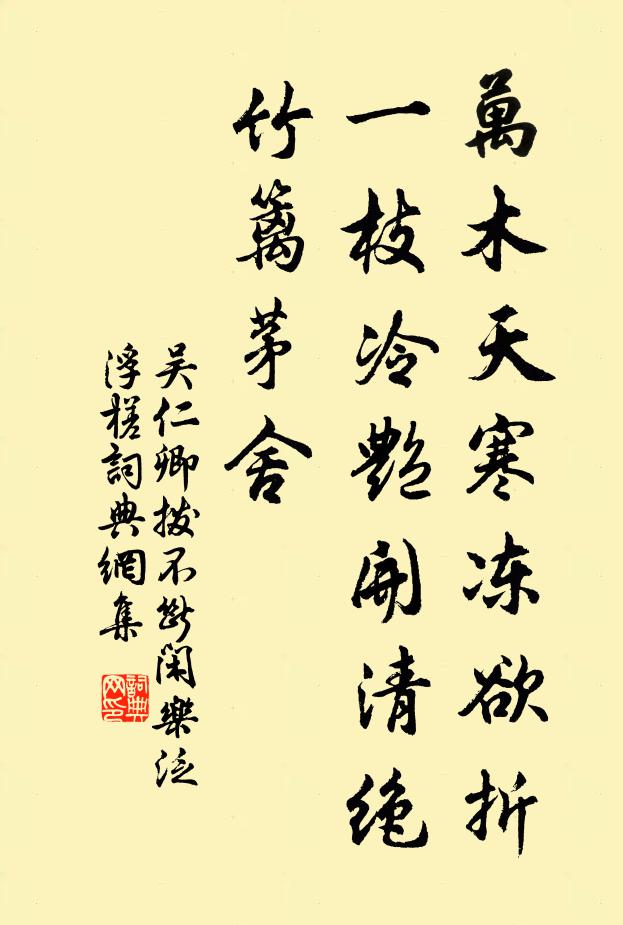 萬木天寒冻欲折
一枝冷艷開清绝
竹篱茅舍
吴仁卿拨不斷閑樂泛
浮槎詞典網集
詞典
网印